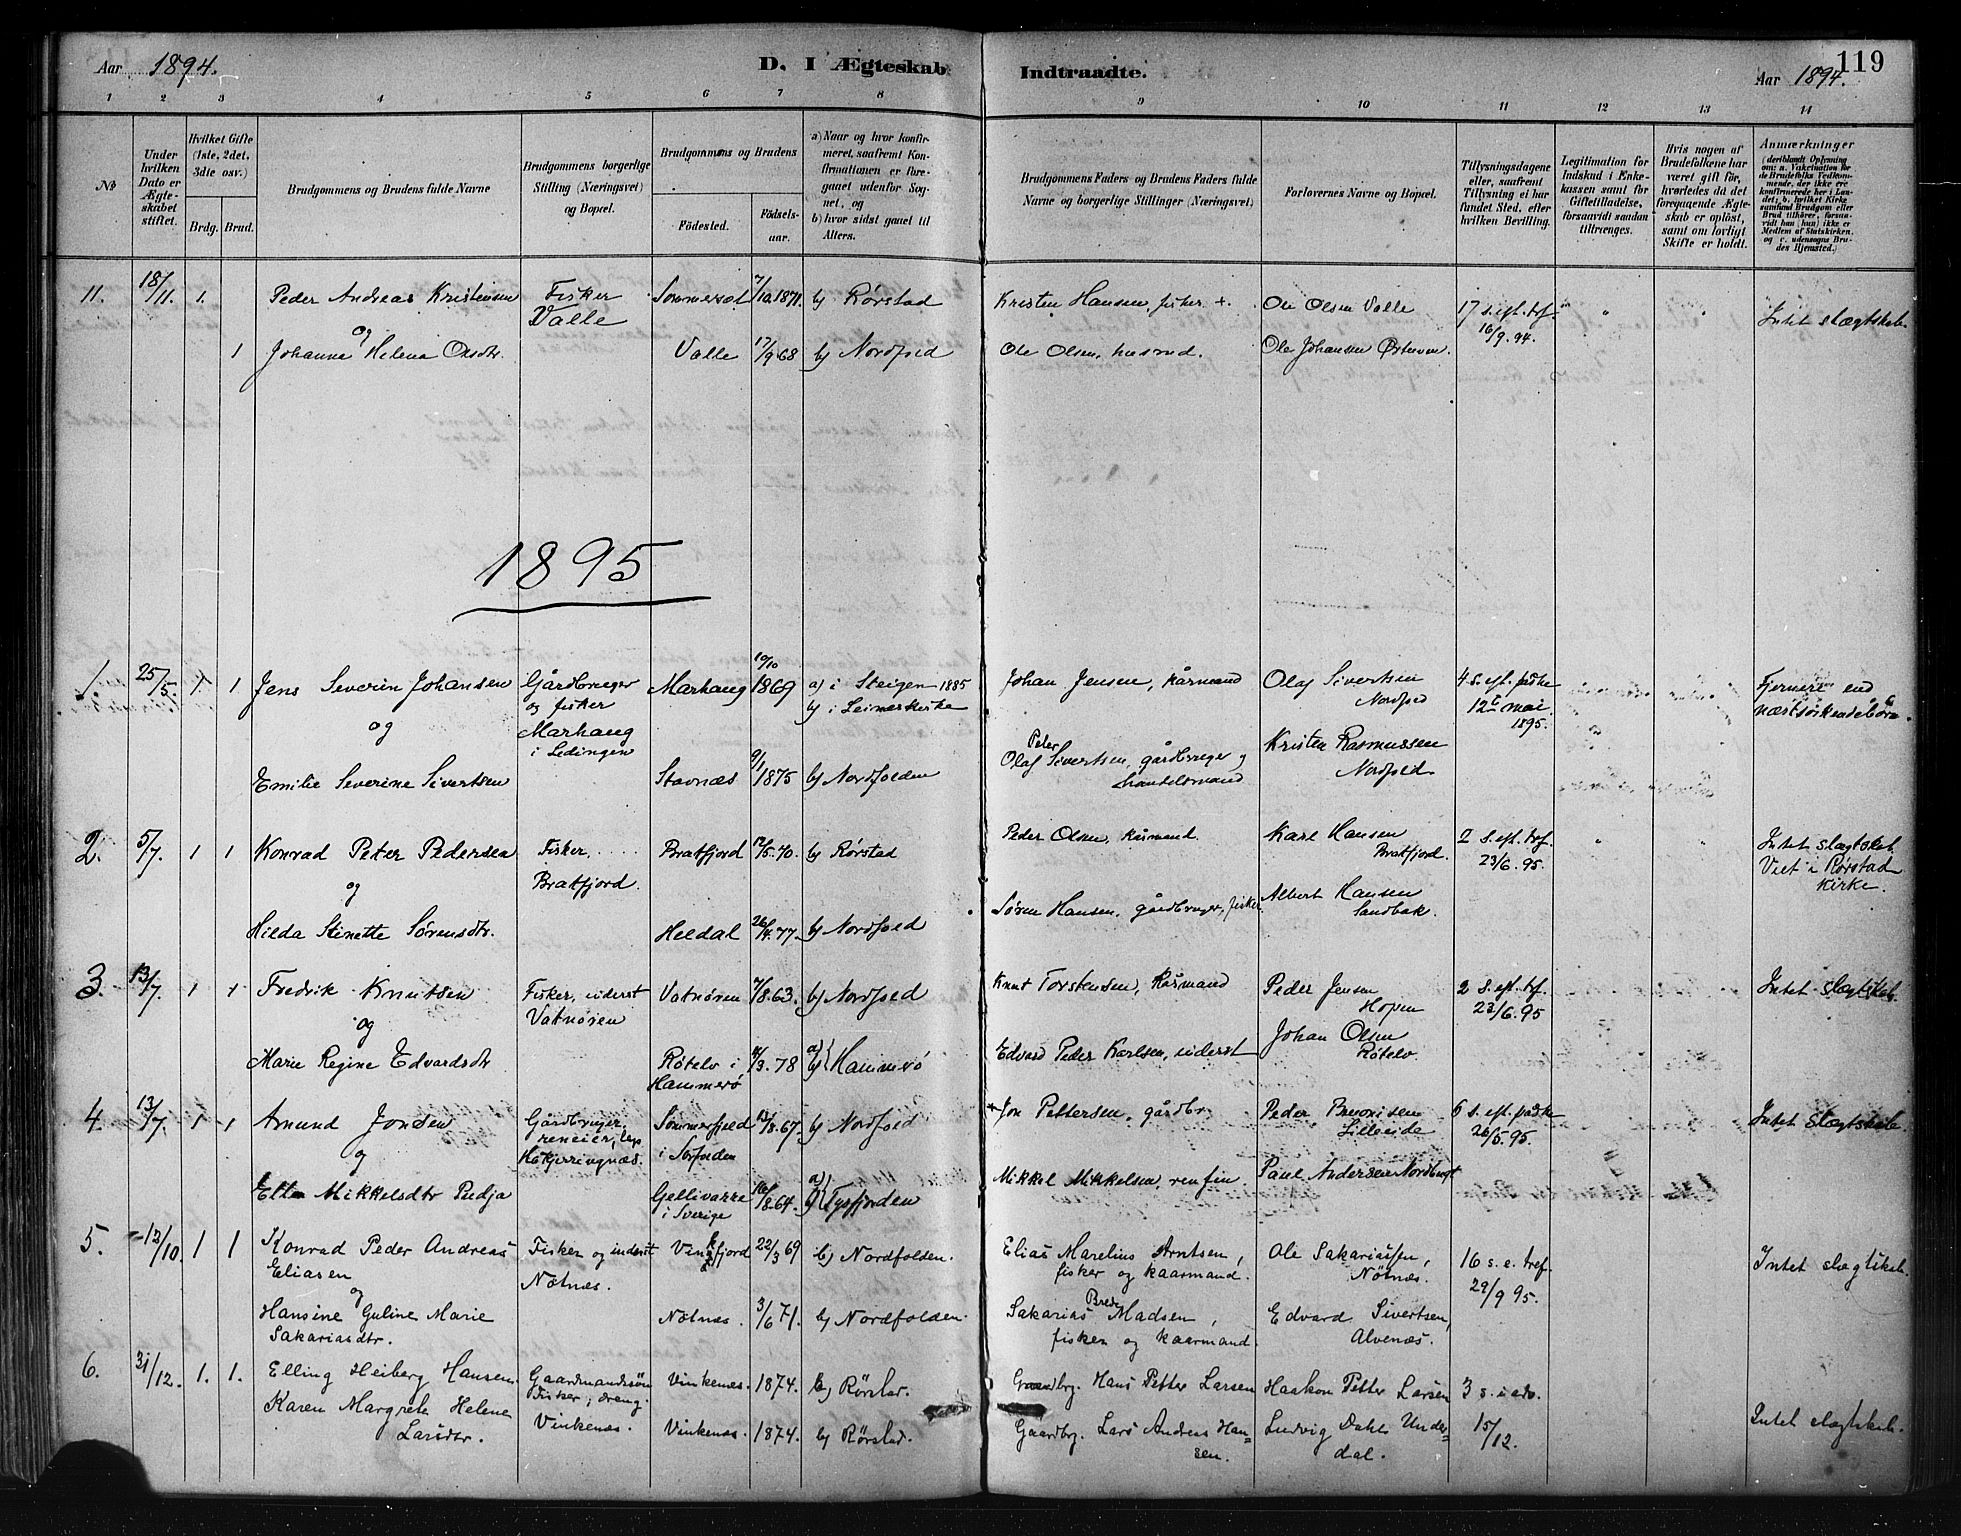 Aar 1894. D. I Ægteskab Indtraadte. Aar 1894. 119
1 2 3 4 5 6 7 8 9 10 11 12 13 14
No
Under hvilken Dato er Ægteskabet stiftet.
Hvilket Gifte (1ste, 2det, 3die osv.)
Brdg. Brud.
Brudgommens og Brudens fulde Navne
Brudgommens borgerlige Stilling (Næringsvei) og Bopæl.
Brudgommens og Brudens
Fødested. Fødsels-aar.
a) Naar og hvor konfirmeret, saafremt Konfirmationen er foregaaet udenfor Sognet, og
b) hvor sidst gaaet til Alters.
Brudgommens Faders og Brudens Faders fulde Navne og borgerlige Stillinger (Næringsvei)
Forlovernes Navne og Bopæl.
Tillysningsdagene eller, saafremt Tillysning ei har fundet Sted, efter hvilken Bevilling.
Legitimation for Indskud i Enkekassen samt for Giftetilladelse, forsaavidt saadan tiltrænges.
Hvis nogen af Brudefolkene har været gift før, hvorledes da det foregaaende Ægteskab er opløst, samt om lovligt Skifte er holdt.
Anmærkninger
(deriblandt Oplysning om: a. Vakcination for de Brudefolks Vedkommende, der ikke ere konfirmerede her i Landet; b. hvilket Kirkesamfund Brudgom eller Brud tilhører, forsaavidt han (hun) ikke er Medlem af Statskirken, og c. udensogns Brudes Hjemsted.)
11. 18/11. 1. Peder Andreas Kristensen Fisker Sommerset 7/10 1871. b) Rørstad Kristen Hansen, fisker +. Ole Olsen Valle 17 s. eft. tref. Intet slægtskab
og Valle 16/9. 94.
1 Johanna Helena Olsdtr. Valle 17/9 68 b) Nordfold Ole Olsen, husmd. Ole Johansen
1895
1. 25/5. 1. 1. Jens Severin Johansen Gårdbruger Marhaug 10/10 1869 a) i Steigen 1885 Johan Jensen, kårmand Olaf Sivertsen 4 s. eft. påske Fjernere end
og fisker b) i Leinæs kirke Nordfold 12te mai næstsøskendebørn.
og Marhaug 1895.
i Lødingen Peter Kristen Rasmussen
Emilie Severine Sivertsen Stavnæs 9/1 1875 b) Nordfolden Olaf Sivertsen, gårdbruger og Nordfold.
handelsmand
2. 5/7. 1 1 Konrad Peter Pedersen Fisker, Bratfjord 12/5. 70. b) Rørstad Peder Olsen, kårmand. Karl Hansen 2 s. eft. tref. Intet slagtskab
og Bratfjord. Bratfjord. 23/6. 95. Viet i Rørstad
Kirke.
Albert Hansen
Hilda Stinette Sørensdtr. Heldal 26/4. 77. b) Nordfold Søren Hansen, gårdbruger, fisker. Sandbak.
3. 13/7. 1 1 Fredrik Knutsen Fisker, inderst Vatnøren 7/8. 63. b) Nordfold Knut Torstensen, kårmand Peder Jensen 2 s. eft. tref. Intet slagtskab
og Vatnøren Hopen 23/6. 95
Johan Olsen
Marie Regine Edvardsdtr Røtelv i 3. 78 a) b) Hammerø Edvard Peder Karlsen, inderst Røtelv
Hammerø
4. 13/7. 1 1 Amund Jonsen Gårdbruger, Sommerfjeld 13/8. 67. b) Nordfold + Jon Pettersen, gårdbr Peder 6 s. eft. påske Intet slægtskab.
og reneier, i Sørfolden Lilleeide 26/5. 95.
Ellen Mikkelsdtr Pudja Gellivarre 16/8. 64. a) b) Tysfjorden Mikkel Mikkelsen, renfin Paul Andersen Nordbugt
i Sverige
5. 12/10. 1 1 Konrad Peder Andreas Fisker og inderst Vinkfjord 22/3 69 b) Nordfolden. Elias Marelius Arntsen, Ole Sakariassen, 16 s. e. tref. Intet slagtskab.
Eliasen Nøtnæs. fisker og kaarmand. Nøtnæs. 29/9 95.
og
Hansine Guline Marie Nøtnæs. 3/6 71. b) Nordfolden. Sakarias Brede Madsen, Edvard Sivertsen,
Sakariasdtr. fisker og kaarmand. Alvenæs.
6. 31/12. 1. 1. Elling Heiberg Hansen. Gaardmandssøn Vinkenæs. 1874. b) Rørstad. Gaardbrg. Hans Petter Larsen Haakon Petter Larsen 3 s. i adv.
Karen Margrete Helene Fisker, dreng. 15/12. Intet slagtskab.
Larsdtr. Vinkenæs. Vinkenæs. 1874. b) Rørstad. Gaardbrg. Lars Andreas Hansen. Ludvig Dahl Underdal.